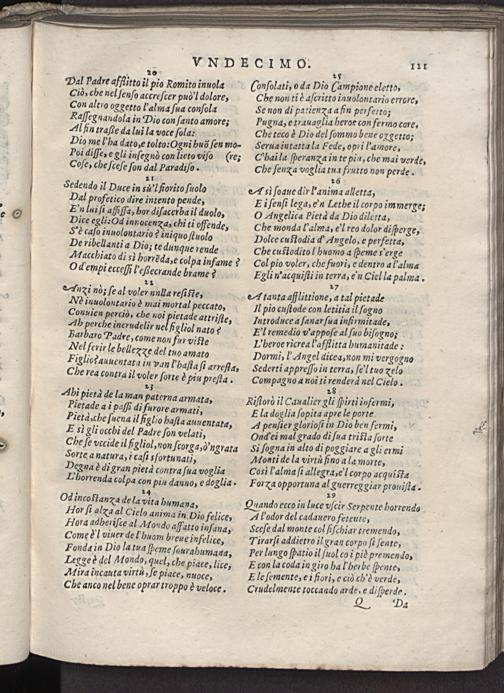 VNDECIMO. 121
20
Dal Padre afflitto il pio Romito inuola
Ciò, che nel senso accrescer può'l dolore,
Con altro oggetto l'alma sua consola
Rassegnandola in Dio con santo amore;
Al fin trasse da lui la voce sola:
Dio me l'ha dato, e tolto: Ogni huõ sen mo-
Poi disse, e gli insegnò con lieto viso (re;
Cose, che scese son dal Paradiso.
21
Sedendo il Duce in sù'l fiorito suolo
Dal profetico dire intento pende,
E'n lui si affissa, hor disacerba il duolo,
Dice egli: Od innocenza, chi ti offende,
S'è caso inuolontario? ò iniquo stuolo
De ribellanti a Dio; te dunque rende
Macchiato di sì horrẽda, e colpa infame?
O d'empi eccessi l'essecrande brame?
22
Anzi nò; se al voler nulla resiste,
Nè inuolontario è mai mortal peccato,
Conuien perciò, che noi pietade attriste,
Ah perche incrudelir nel figliol nato?
Barbaro Padre, come non fur viste
Nel ferir le bellezze del tuo amato
Figlio? auuentata in van l'hasta si arresta,
Che rea contra il voler forte è piu presta.
23
Ahi pietà de la man paterna armata,
Pietade a i passi di furore armati,
Pietà, che suena il figlio hasta auuentata,
E sì gli occhi del Padre son velati,
Che se vccide il figliol, non scorga, ò'ngrata
Sorte a natura, i casi sfortunati,
Degna è di gran pietà contra sua voglia
L'horrenda colpa con piu danno, e doglia.
24
Od incostanza de la vita humana,
Hor si alza al Cielo anima in Dio felice,
Hora adherisce al Mondo affatto insana,
Come è'l viuer de l'huom breue infelice,
Fonda in Dio la tua speme sourahumana,
Legge è del Mondo, quel, che piace, lice,
Mira incauta virtù, se piace, nuoce,
Che anco nel bene oprar troppo è veloce.
25
Consolati, o da Dio Campione eletto,
Che non ti è ascritto inuolontario errore,
Se non di patienza a fin perfetto;
Pugna, e trauaglia heroe con fermo core,
Che teco è Dio del sommo bene oggetto;
Serua intatta la Fede, opri l'amore,
C'hai la speranza in te pia, che mai verde,
Che senza voglia tua frutto non perde.
26
A sì soaue dir l'anima alletta,
E i sensi lega, e'n Lethe il corpo immerge;
O Angelica Pietà da Dio diletta,
Che monda l'alma, e'l reo dolor disperge,
Dolce custodia d'Angelo, e perfetta,
Che custodito l'huomo a speme s'erge
Col pio voler, che fuori, e dentro a l'alma
Egli n'acquisti in terra, e'n Ciel la palma.
27
A tanta afflittione, a tal pietade
Il pio custode con letitia il sogno
Introduce a sanar sua infirmitade,
E'l remedio v'appose al suo bisogno;
L'heroe ricrea l'afflitta humanitade:
Dormi, l'Angel dicea, non mi vergogno
Sederti appresso in terra, se'l tuo zelo
Compagno a noi ti renderà nel Cielo.
28
Ristorò il Caualier gli spirti infermi,
E la doglia sopita apre le porte
A pensier gloriosi in Dio ben fermi,
Ond'ei mal grado di sua trista sorte
Si sogna in alto di poggiare a gli ermi
Monti de la virtù fino a la morte,
Così l'alma si allegra, e'l corpo acquista
Forza opportuna al guerreggiar prouista.
29
Quando ecco in luce vscir Serpente horrendo
A l'odor del cadauero fetente,
Scese dal monte col fischiar tremendo,
Tirarsi addietro il gran corpo si sente,
Per lungo spatio il suol co i piè premendo,
E con la coda in giro ha l'herbe spente,
E le semente, e i fiori, e ciò ch'è verde,
Crudelmente toccando arde, e disperde.
Q Da